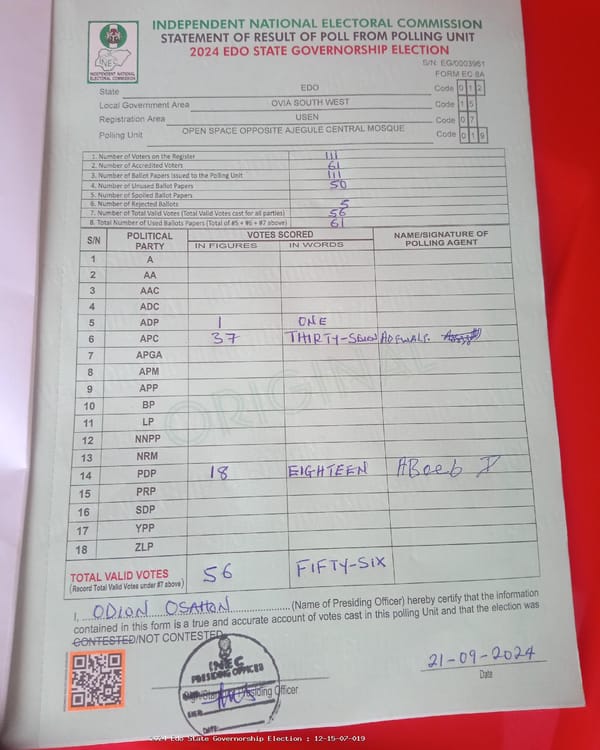 INDEPENDENT NATIONAL ELECTORAL COMMISSION
STATEMENT OF RESULT OF POLL FROM POLLING UNIT
2024 EDO STATE GOVERNORSHIP ELECTION
INEC
INDEPENDENT NATIONAL
ELECTORAL COMMISSION
S/N: EG/0003961
FORM EC 8A
State EDO Code 0 1 2
Local Government Area OVIA SOUTH WEST Code 1 5
Registration Area USEN Code 0 7
Polling Unit OPEN SPACE OPPOSITE AJEGULE CENTRAL MOSQUE Code 0 1 9
1. Number of Voters on the Register 111
2. Number of Accredited Voters 61
3. Number of Ballot Papers Issued to the Polling Unit 111
4. Number of Unused Ballot Papers 50
5. Number of Spoiled Ballot Papers
6. Number of Rejected Ballots 5
7. Number of Total Valid Votes (Total Valid Votes cast for all parties) 56
8. Total Number of Used Ballots Papers (Total of #5 + #6 + #7 above) 61
S/N POLITICAL PARTY VOTES SCORED NAME/SIGNATURE OF POLLING AGENT
IN FIGURES IN WORDS
1 A
2 AA
3 AAC
4 ADC
5 ADP 1 ONE
6 APC 37 THIRTY-SEVEN ADEWALE.
7 APGA
8 APM
9 APP
10 BP
11 LP
12 NNPP
13 NRM
14 PDP 18 EIGHTEEN
15 PRP
16 SDP
17 YPP
18 ZLP
ORIGINAL
TOTAL VALID VOTES 56 FIFTY-SIX
(Record Total Valid Votes under #7 above)
I, ODION OSAHON (Name of Presiding Officer) hereby certify that the information
contained in this form is a true and accurate account of votes cast in this polling Unit and that the election was
CONTESTED/NOT CONTESTED
INEC
PRESIDING OFFICER
DATE
Presiding Officer
21-09-2024
Date
2024 Edo State Governorship Election : 12-15-07-019